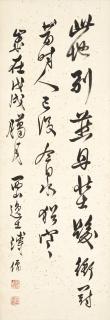 此地别燕丹壮髮衝冠
昔時人已沒今日水猶寒
在戊戌臘月
西山逸士溥儒